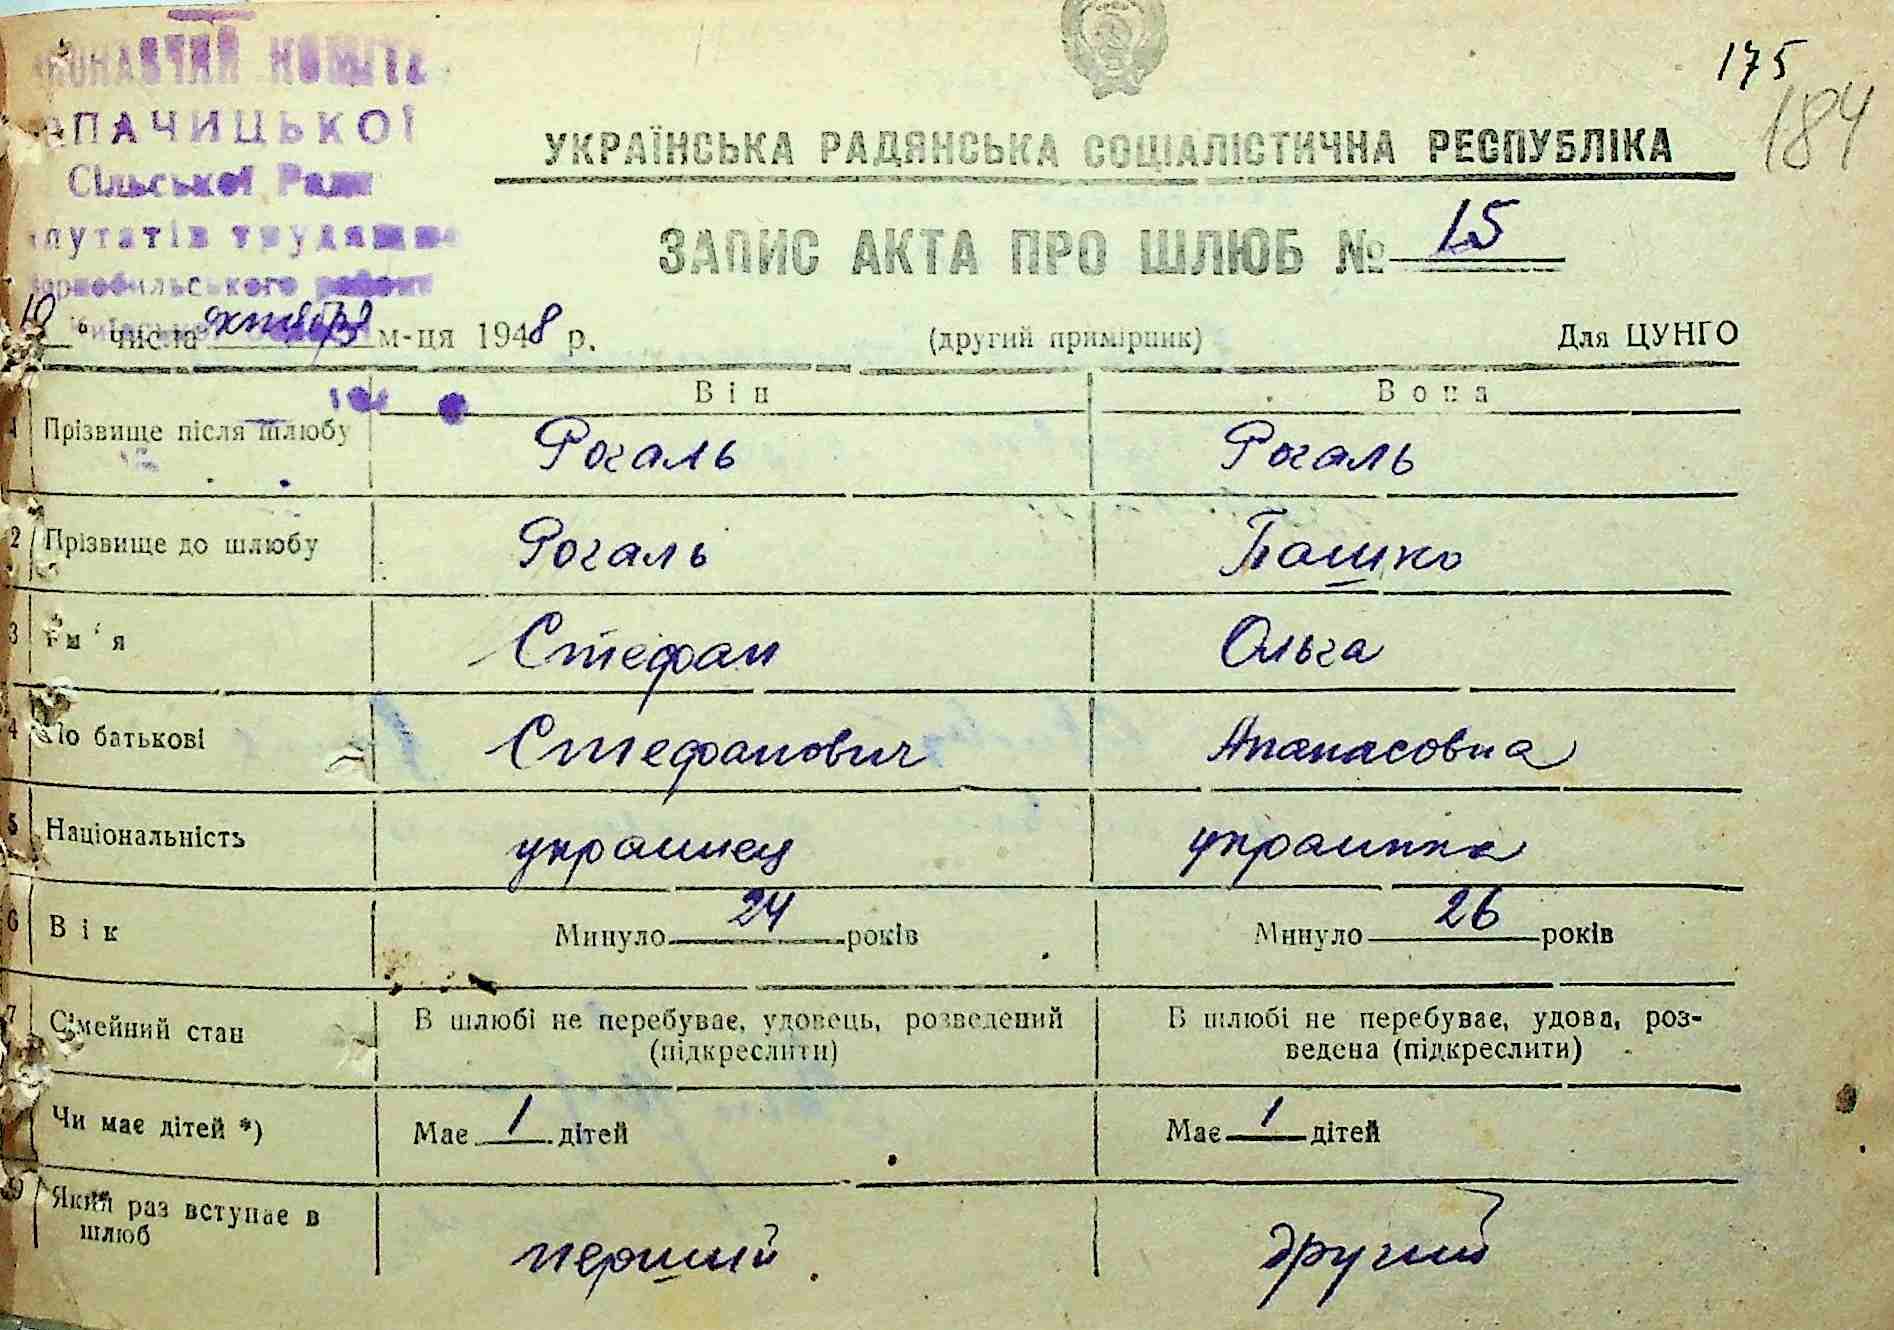 175
184
ПАЧИЦЬКОЇ
Сільської Ради
путатів трудящих
УКРАЇНСЬКА РАДЯНСЬКА СОЦІАЛІСТИЧНА РЕСПУБЛІКА
ЗАПИС АКТА ПРО ШЛЮБ № 15
10 " числа октября м-ця 1948 р. (другий примірник) Для ЦУНГО
Він Вона
1 Прізвище після шлюбу Рогаль Рогаль
2 Прізвище до шлюбу Рогаль Пашко
3 Ім'я Стефан Ольга
4 По батькові Стефанович Апанасовна
5 Національність украинец украинка
6 Вік Минуло 24 років Минуло 26 років
7 Сімейний стан В шлюбі не перебуває, удовець, розведений (підкреслити) В шлюбі не перебуває, удова, роз-
ведена (підкреслити)
Чи має дітей *) Має 1 дітей Має 1 дітей
9 Який раз вступає в шлюб перший другий